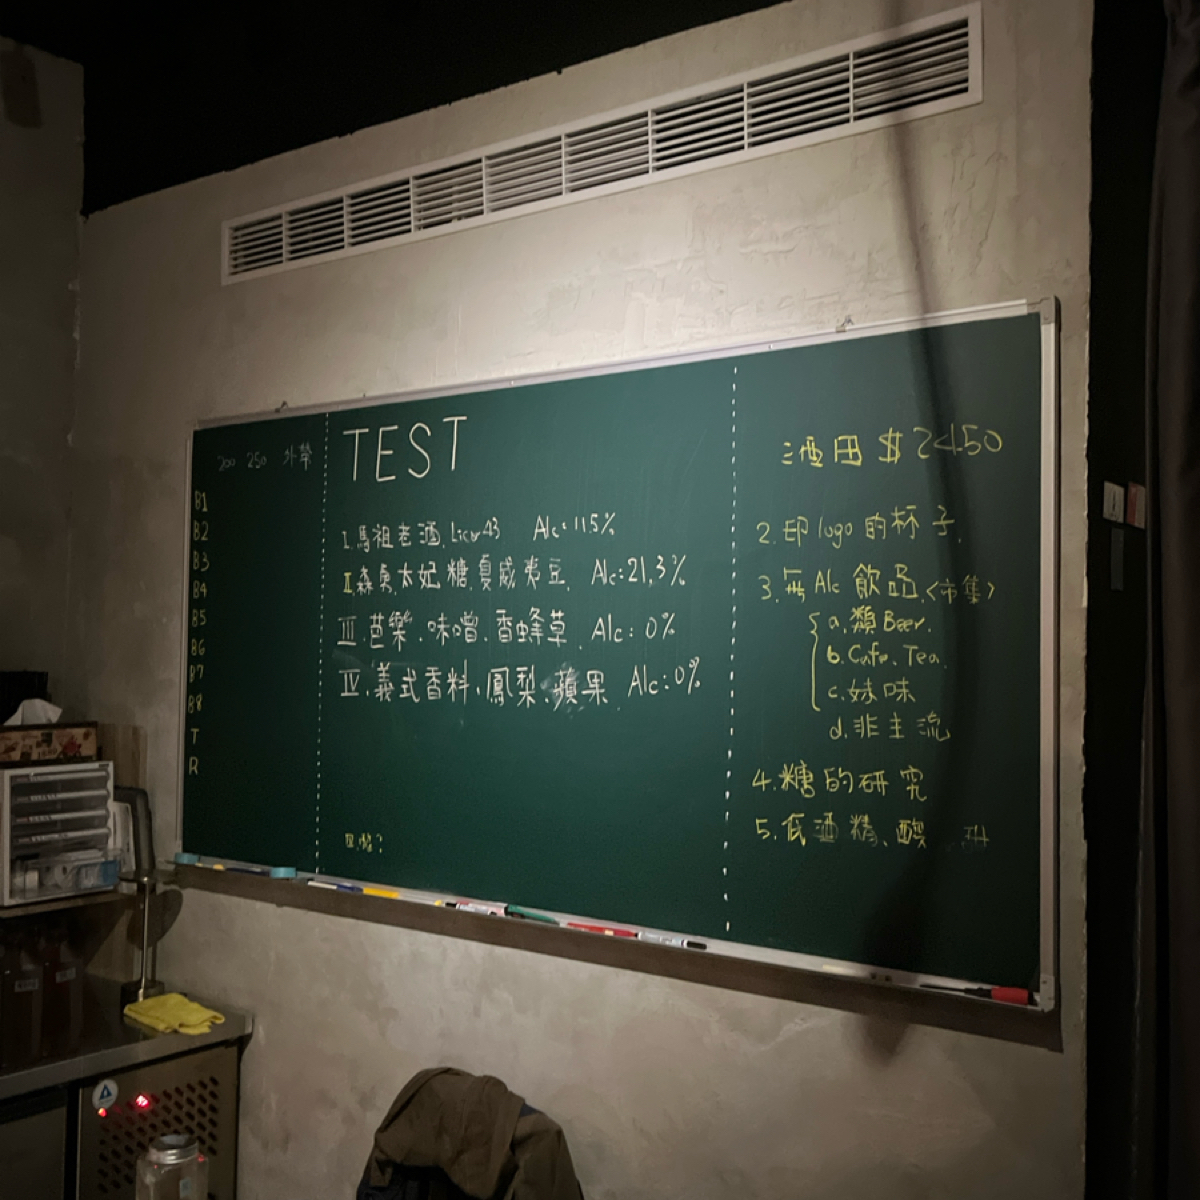 200 250 外帶
B1
B2
B3
B4
B5
B6
B7
B8
T
R
TEST
I.馬祖老酒.Licor43 Alc:11.5%
II.森勇太妃糖.夏威夷豆. Alc:21.3%
III.芭樂.味噌.香蜂草. Alc:0%
IV.義式香料.鳳梨.蘋果 Alc:0%
酒田 $2450
2.印logo的杯子.
3.無Alc飲品.<市集>
a.類Beer.
b.Cafe.Tea.
c.妹味
d.非主流
4.糖的研究
5.低酒精、酸